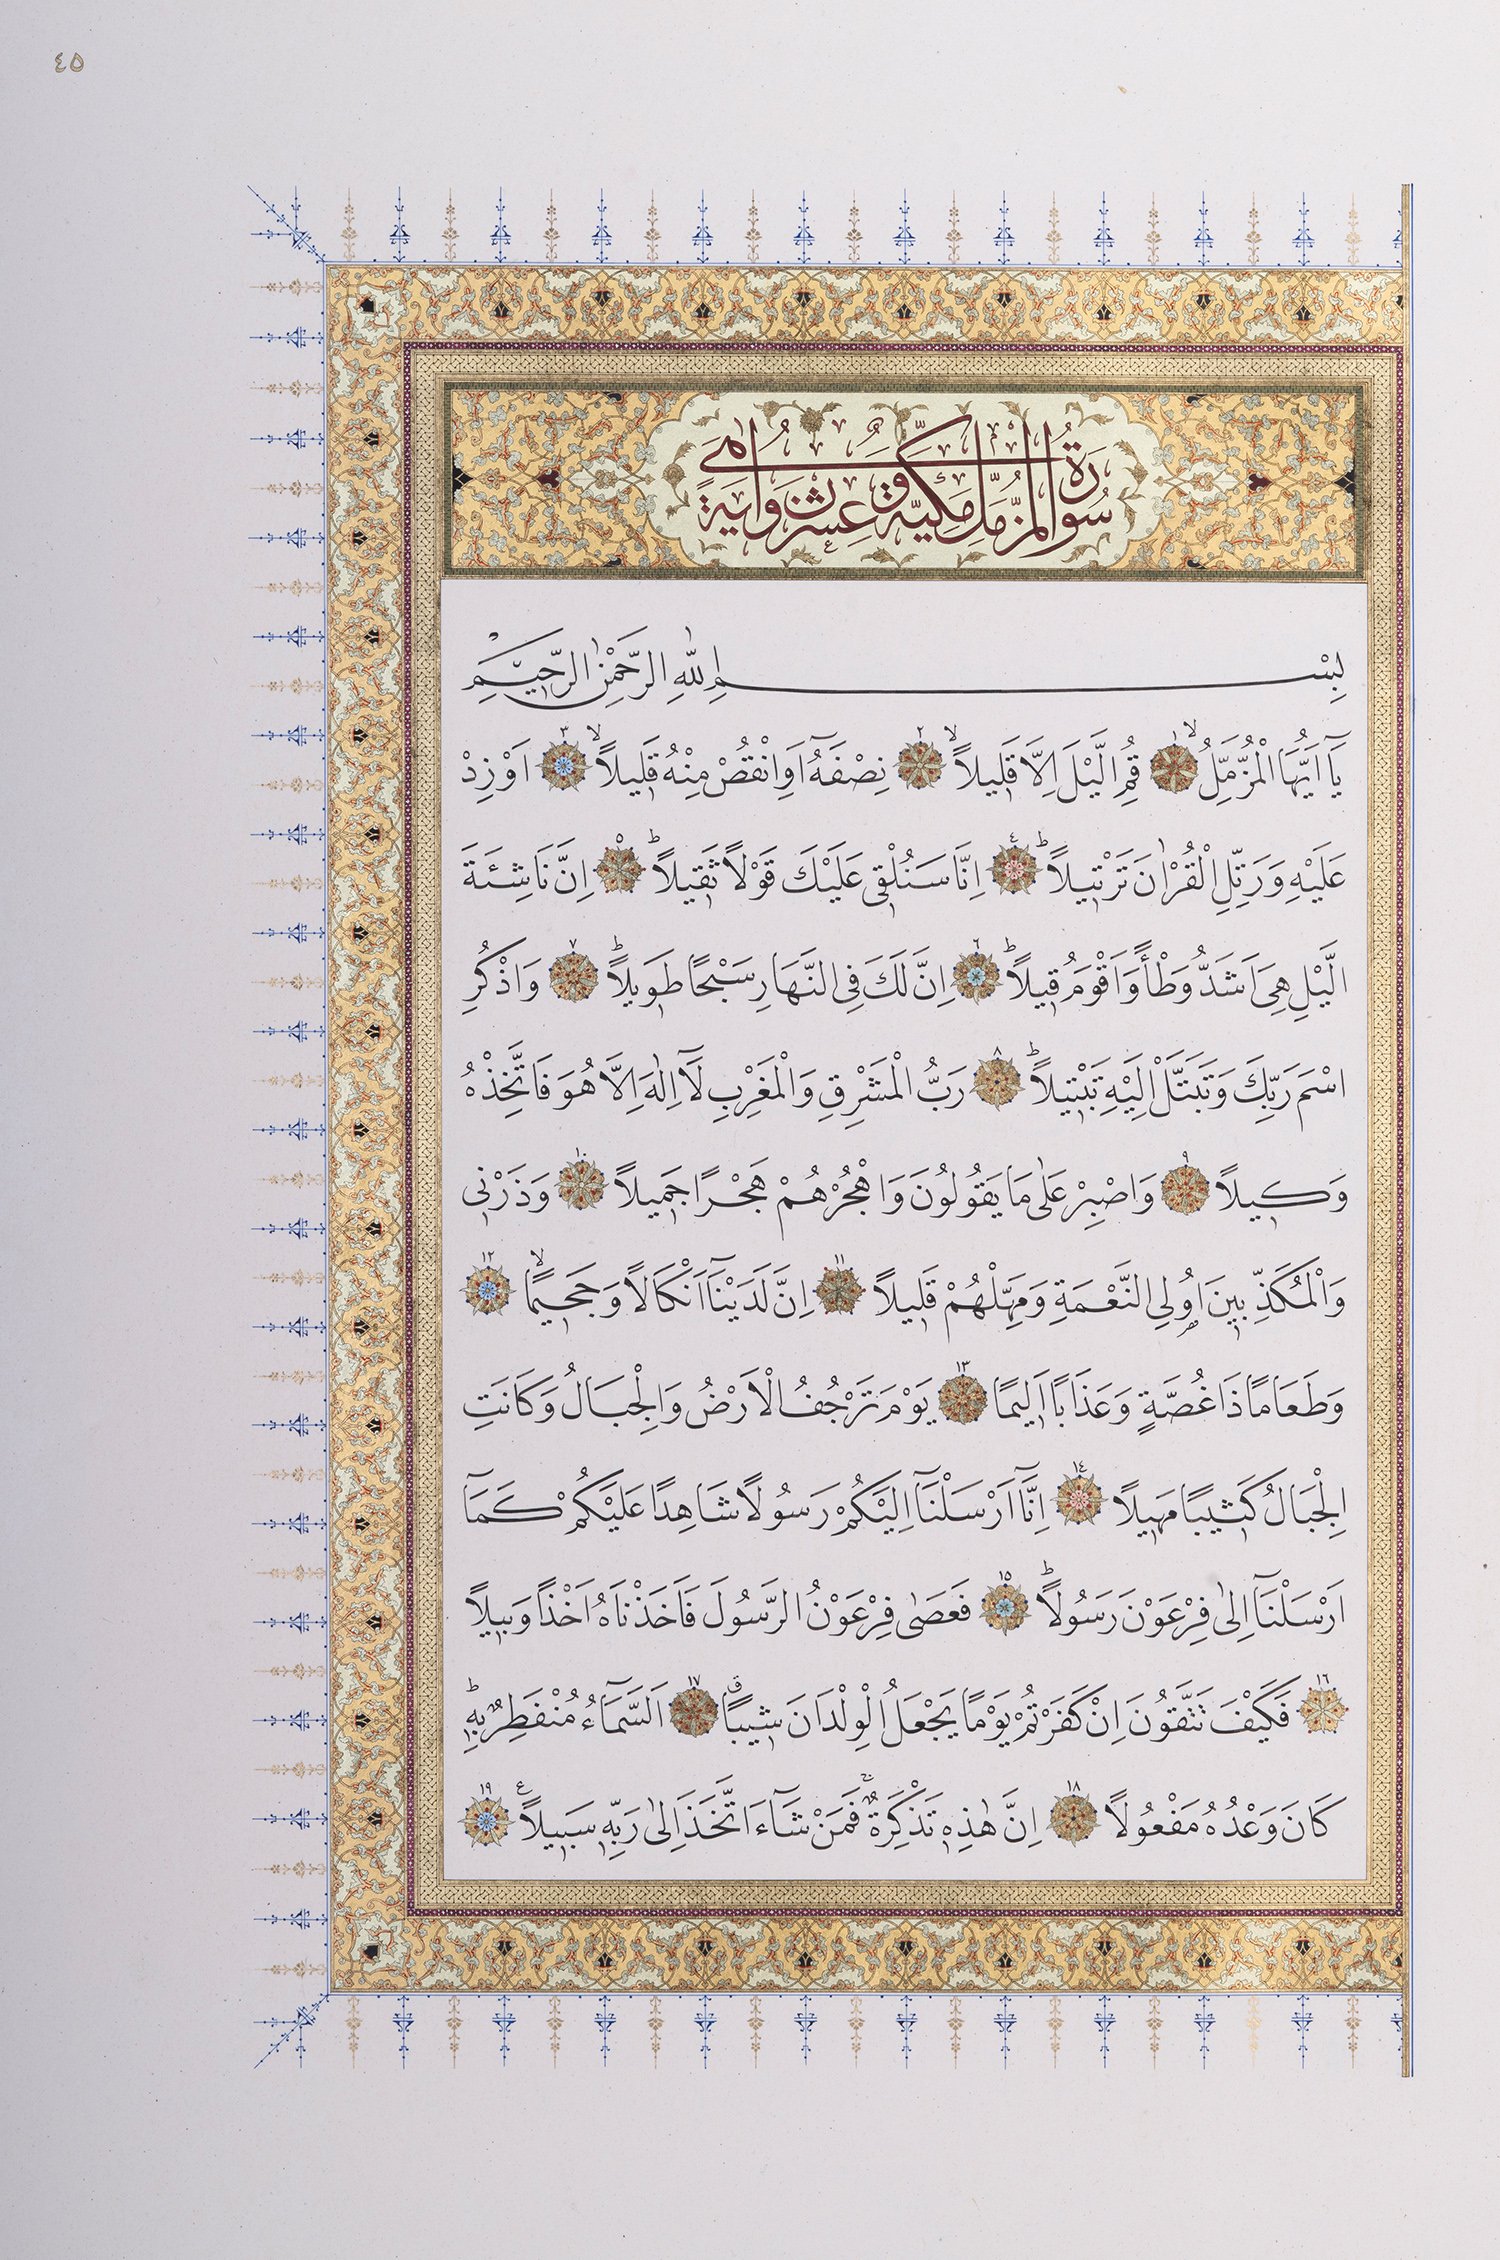 ٤٥
سُورَةُ الْمُزَّمِّلِ مَكِّيَّةٌ وَهِىَ عِشْرُونَ اٰيَةً
بِسْمِ اللّٰهِ الرَّحْمٰنِ الرَّحِيمِ
يَٓا اَيُّهَا الْمُزَّمِّلُۙ ١ قُمِ الَّيْلَ اِلَّا قَلِيلاًۙ ٢ نِصْفَهُٓ اَوِ انْقُصْ مِنْهُ قَلِيلاًۙ ٣ اَوْ زِدْ
عَلَيْهِ وَرَتِّلِ الْقُرْاٰنَ تَرْتِيلاًؕ ٤ اِنَّا سَنُلْقِى عَلَيْكَ قَوْلاً ثَقِيلاًؕ ٥ اِنَّ نَاشِئَةَ
الَّيْلِ هِىَ اَشَدُّ وَطْأً وَاَقْوَمُ قِيلاًؕ ٦ اِنَّ لَكَ فِى النَّهَارِ سَبْحًا طَوِيلاًؕ ٧ وَاذْكُرِ
اسْمَ رَبِّكَ وَتَبَتَّلْ اِلَيْهِ تَبْتِيلاًؕ ٨ رَبُّ الْمَشْرِقِ وَالْمَغْرِبِ لَٓا اِلٰهَ اِلَّا هُوَ فَاتَّخِذْهُ
وَكِيلاً ٩ وَاصْبِرْ عَلٰى مَا يَقُولُونَ وَاهْجُرْهُمْ هَجْرًا جَمِيلاً ١٠ وَذَرْنِى
وَالْمُكَذِّبِينَ اُولِى النَّعْمَةِ وَمَهِّلْهُمْ قَلِيلاً ١١ اِنَّ لَدَيْنَٓا اَنْكَالاً وَجَحِيمًاۙ ١٢
وَطَعَامًا ذَا غُصَّةٍ وَعَذَابًا اَلِيمًا ١٣ يَوْمَ تَرْجُفُ الْاَرْضُ وَالْجِبَالُ وَكَانَتِ
الْجِبَالُ كَثِيبًا مَهِيلاً ١٤ اِنَّٓا اَرْسَلْنَٓا اِلَيْكُمْ رَسُولاً شَاهِدًا عَلَيْكُمْ كَمَٓا
اَرْسَلْنَٓا اِلٰى فِرْعَوْنَ رَسُولاًؕ ١٥ فَعَصٰى فِرْعَوْنُ الرَّسُولَ فَاَخَذْنَاهُ اَخْذًا وَبِيلاً
١٦ فَكَيْفَ تَتَّقُونَ اِنْ كَفَرْتُمْ يَوْمًا يَجْعَلُ الْوِلْدَانَ شِيبًاۗ ١٧ اَلسَّمَٓاءُ مُنْفَطِرٌ بِهِؕ
كَانَ وَعْدُهُ مَفْعُولاً ١٨ اِنَّ هٰذِهِ تَذْكِرَةٌۚ فَمَنْ شَٓاءَ اتَّخَذَ اِلٰى رَبِّهِ سَبِيلاً ع ١٩